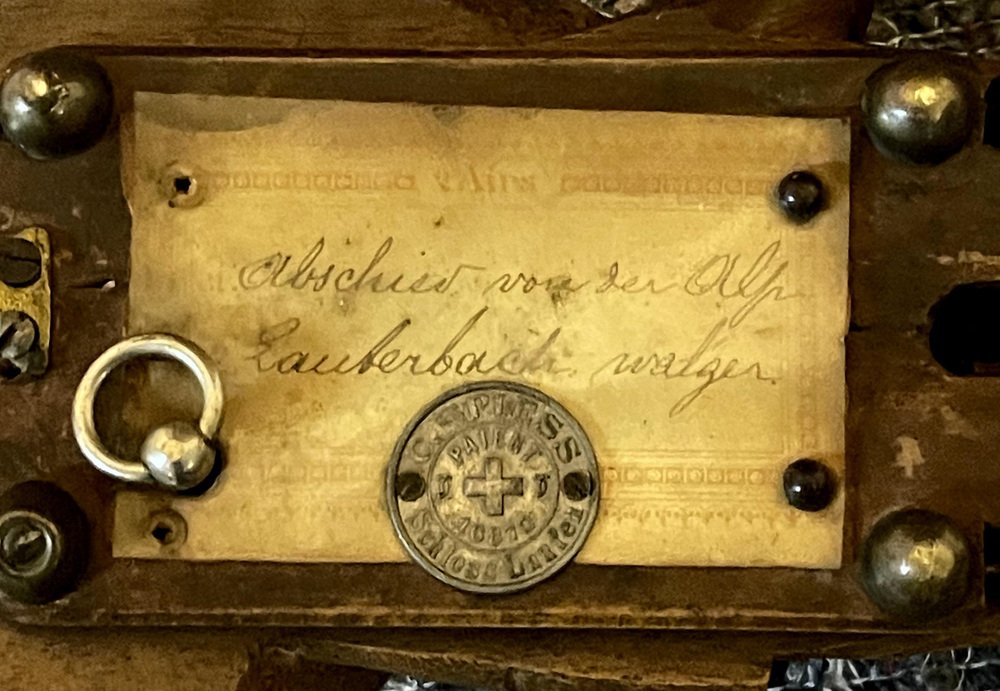 Abschied von der Alp
Lauterbach walzer
C. SPIESS
PATENT
10873
Schloss Laufen